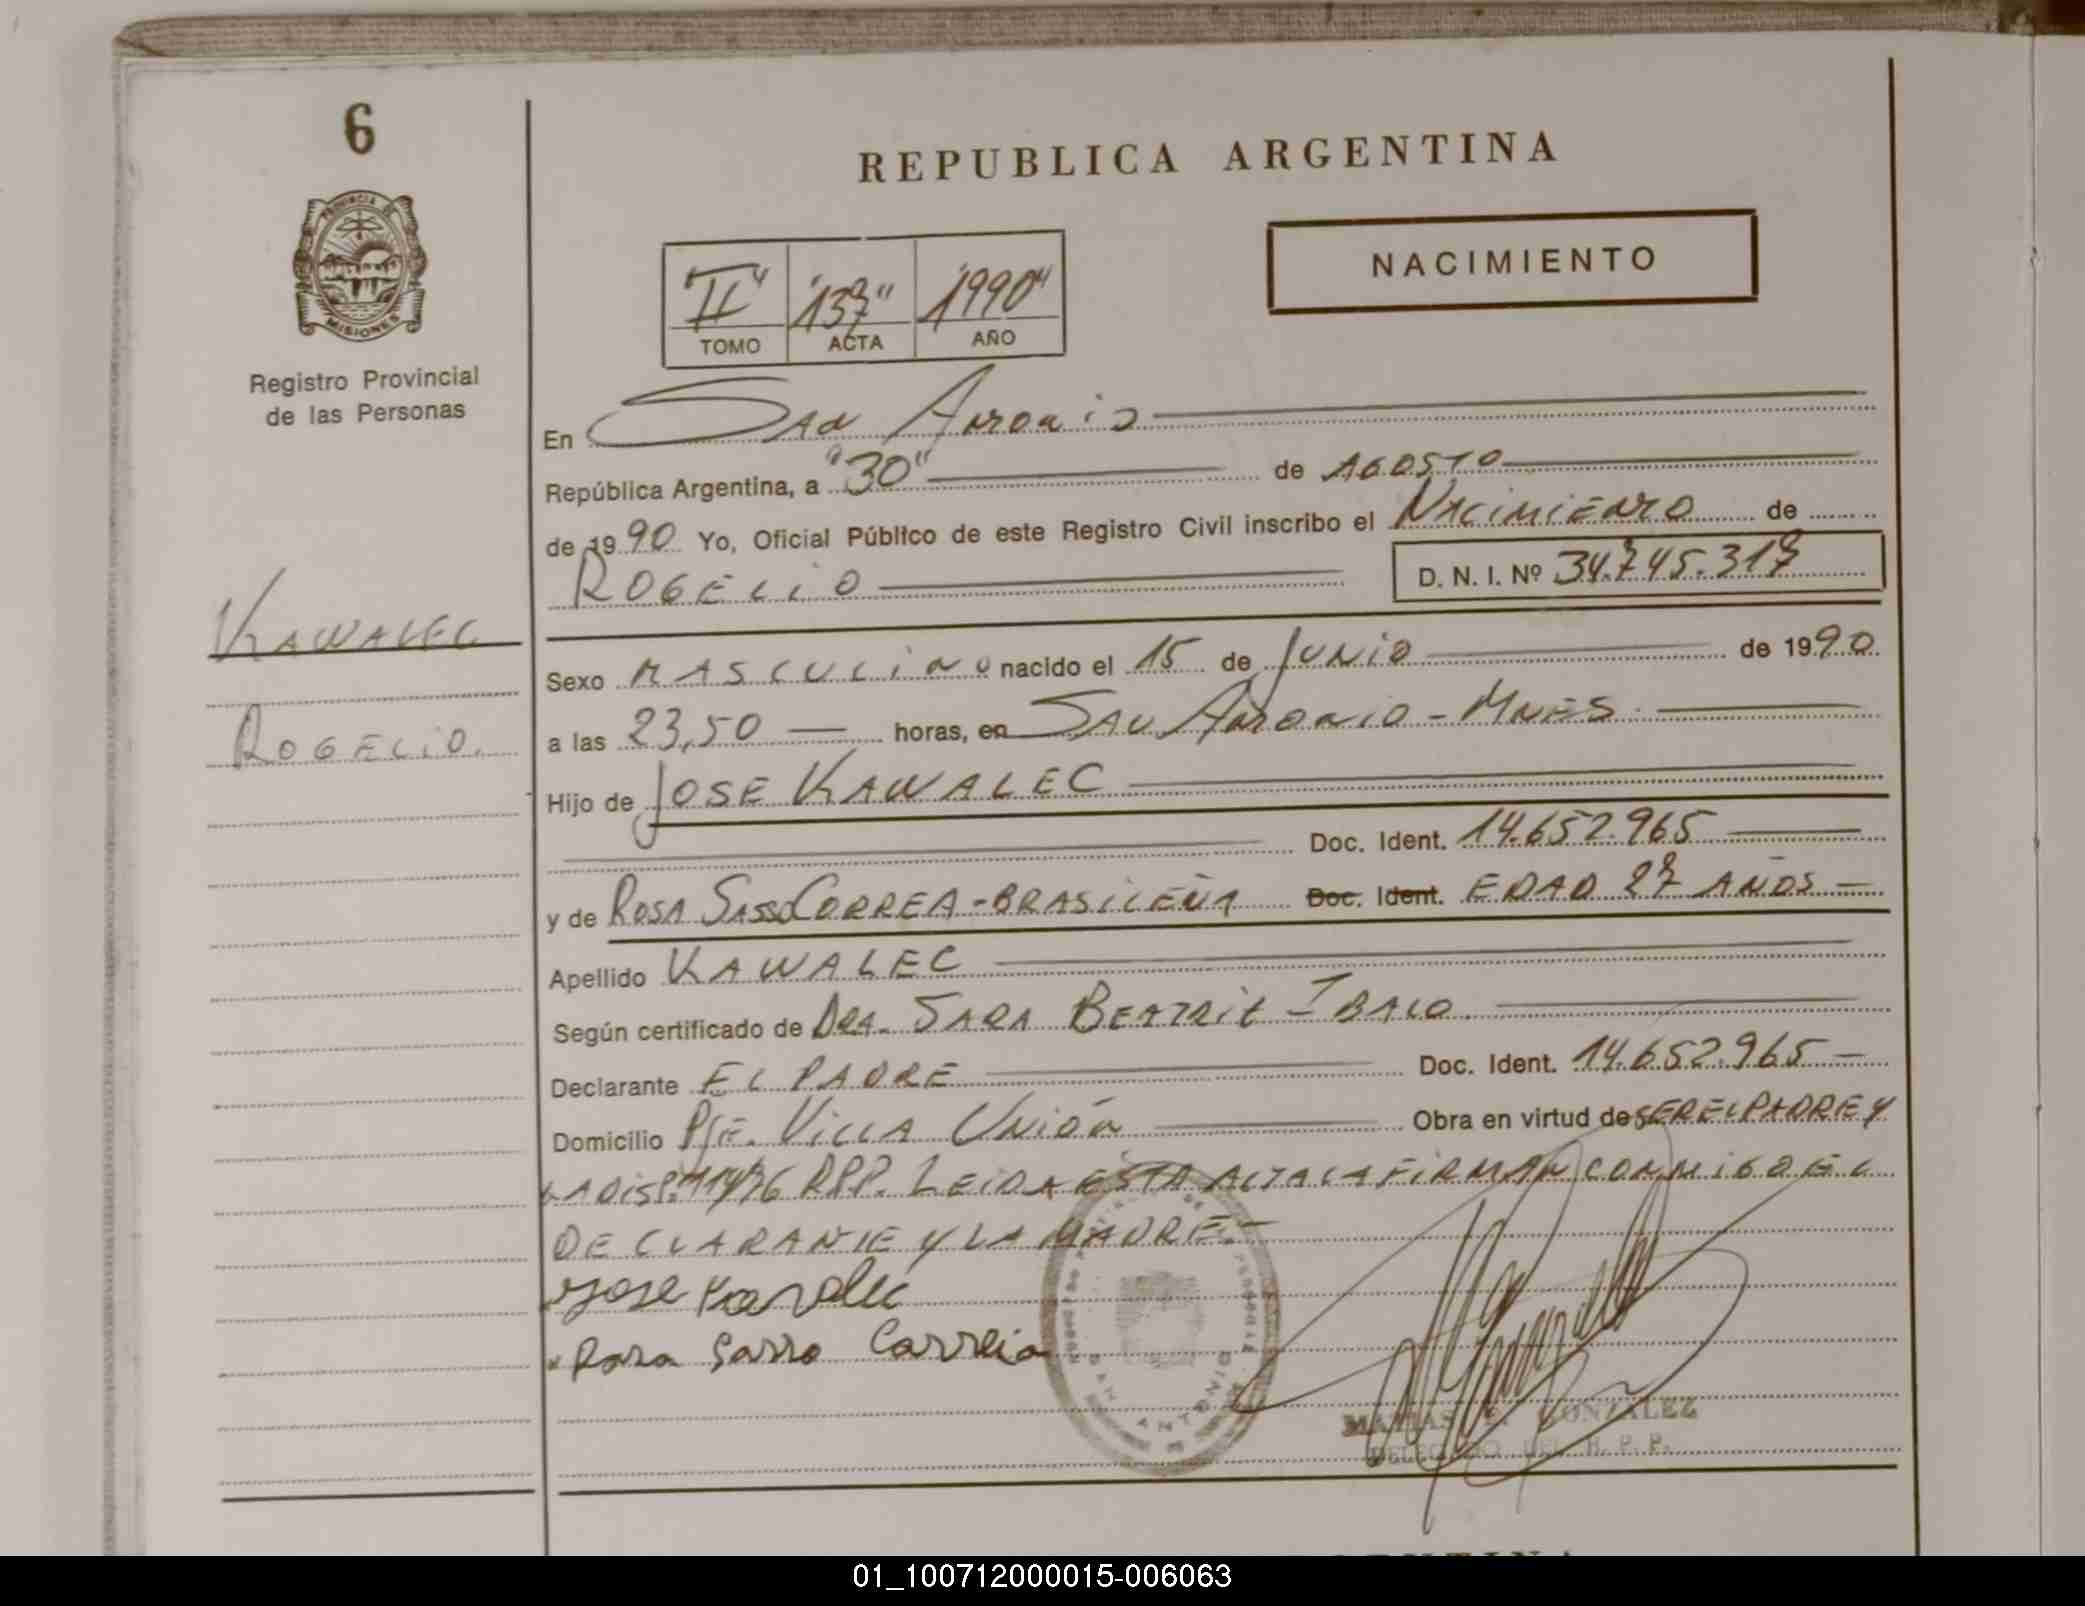 6
REPUBLICA ARGENTINA
PROVINCIA DE
MISIONES
Registro Provincial
de las Personas
NACIMIENTO
"II" "137" "1990"
TOMO ACTA AÑO
En San Antonio
República Argentina, a "30" de AGOSTO
de 1990 Yo, Oficial Público de este Registro Civil inscribo el NACIMIENTO de
ROGELIO D. N. I. Nº 34.745.317
KAWALEC
ROGELIO.
Sexo MASCULINO nacido el 15 de JUNIO de 1990
a las 23,50 horas, en SAN ANTONIO - MNES
Hijo de JOSE KAWALEC
Doc. Ident. 14.652.965
y de ROSA SASSO CORREA - BRASILEÑA Doc. Ident. EDAD 27 AÑOS
Apellido KAWALEC
Según certificado de DRA. SARA BEATRIZ IBALO
Declarante EL PADRE Doc. Ident. 14.652.965
Domicilio PJE. VILLA UNIÓN Obra en virtud de SER EL PADRE Y
LA DISP. 11/76 RPP. LEIDA ESTA ACTA LA FIRMAN CONMIGO EL
DECLARANTE Y LA MADRE.
Jose Kawalec
Rosa Sasso Correia
SAN ANTONIO
MATIAS GONZALEZ
DELEGADO DEL R. P. P.
01_100712000015-006063